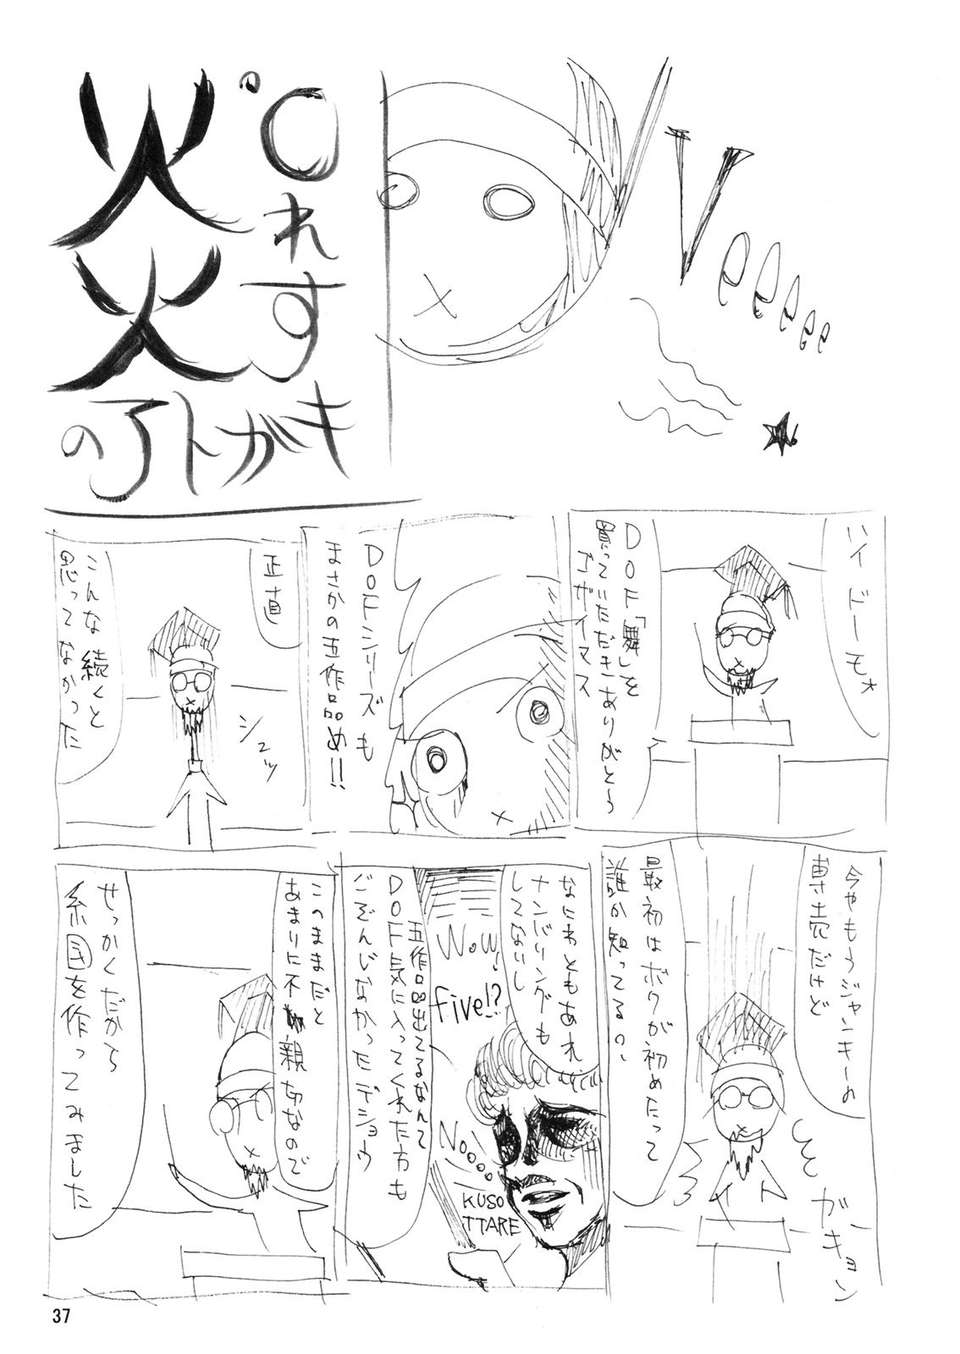 Veeeee
℃れすすキ
火火のアトガキ
ハイ ドーモ★
DOF「舞」を
買っていただきありがとう
ゴザイマス
DOFシリーズも
まさかの五作品め!!
正直
こんな続くと
思ってなかった
シュッ
今やもうジャンキーの
専売だけど
最初はボクが初めたって
誰か知ってるの、
ガキョン
なにわともあれ
ナンバリングも
してないし
Wow!
five!?
No。。。
KUSO
TTARE
五作品出てるなんて
DOF気に入ってくれた方も
ごぞんじなかったデショウ
このままだと
あまりに不親切なので
せっかくだから
系図を作ってみました
37